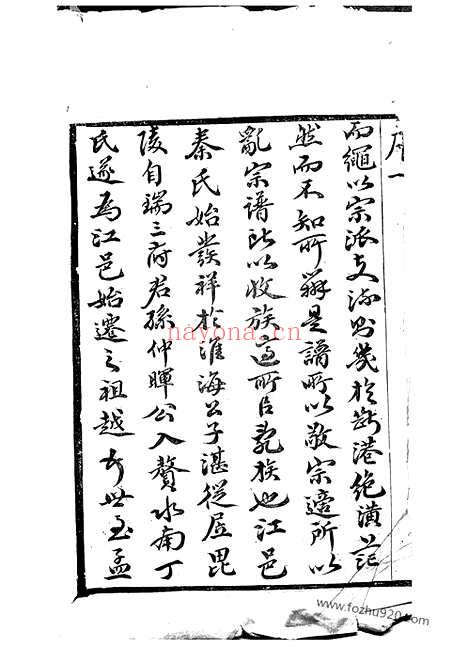 序一
而繩以宗派支流則幾於斷港絶潢
然而不知所辨是譜所以敬宗適所以
亂宗譜所以收族適所㠯亂族也江邑
秦氏始發祥於淮海公子湛從居毘
陵自瑞三府君孫仲暉公入贅水南丁
氏遂為江邑始遷之祖越世至孟
nayona.cn
www.fozhu920.com